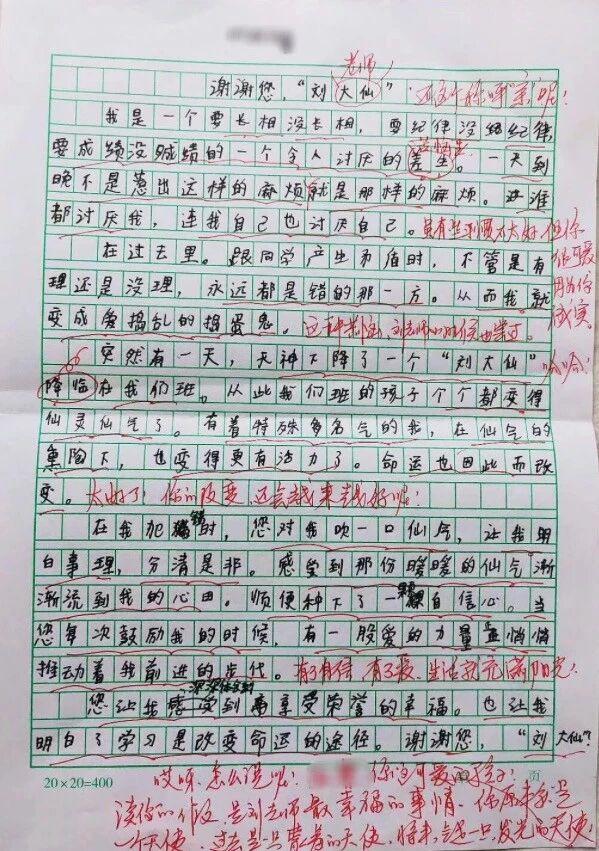 老师
谢谢您，“刘大仙” 还这个称呼“亲”呢！
我是一个要长相没长相，要纪律没纪律，
要成绩没成绩的一个令人讨厌的差生。一天到
晚不是惹出这样的麻烦就是那样的麻烦。谁
都讨厌我，连我自己也讨厌自己。
在过去里。跟同学产生矛盾时，不管是有
理还是没理，永远都是错的那一方。从而我就
变成爱捣乱的捣蛋鬼。
突然有一天，天神下降了一个“刘大仙” 哈哈！
降临在我们班。从此我们班的孩子个个都变得
仙灵仙气了。有着特殊多名气的我，在仙气的
熏陶下，也变得更有活力了。命运也因此而改
变。太好了！你的改变，还会越来越好啦！
在我犯错时，您对我吹一口仙气，让我明
白事理，分清是非。感受到那份暖暖的仙气渐
渐流到我的心田。顺便种下了一颗自信心。当
您每次鼓励我的时候，有一股爱的力量悄悄
推动着我前进的步伐。有了自信，有了爱，生活就充满阳光！
深深体会到
您让我感受到享受荣誉的幸福。也让我
明白了学习是改变命运的途径。谢谢您，“刘大仙”！
20×20=400 页
哎呀，怎么说呢！你这可爱的孩子！
读你的作文，是刘老师最幸福的事情，你原来就是
一个天使，过去是一只蒙着的天使，将来是一只发光的天使！